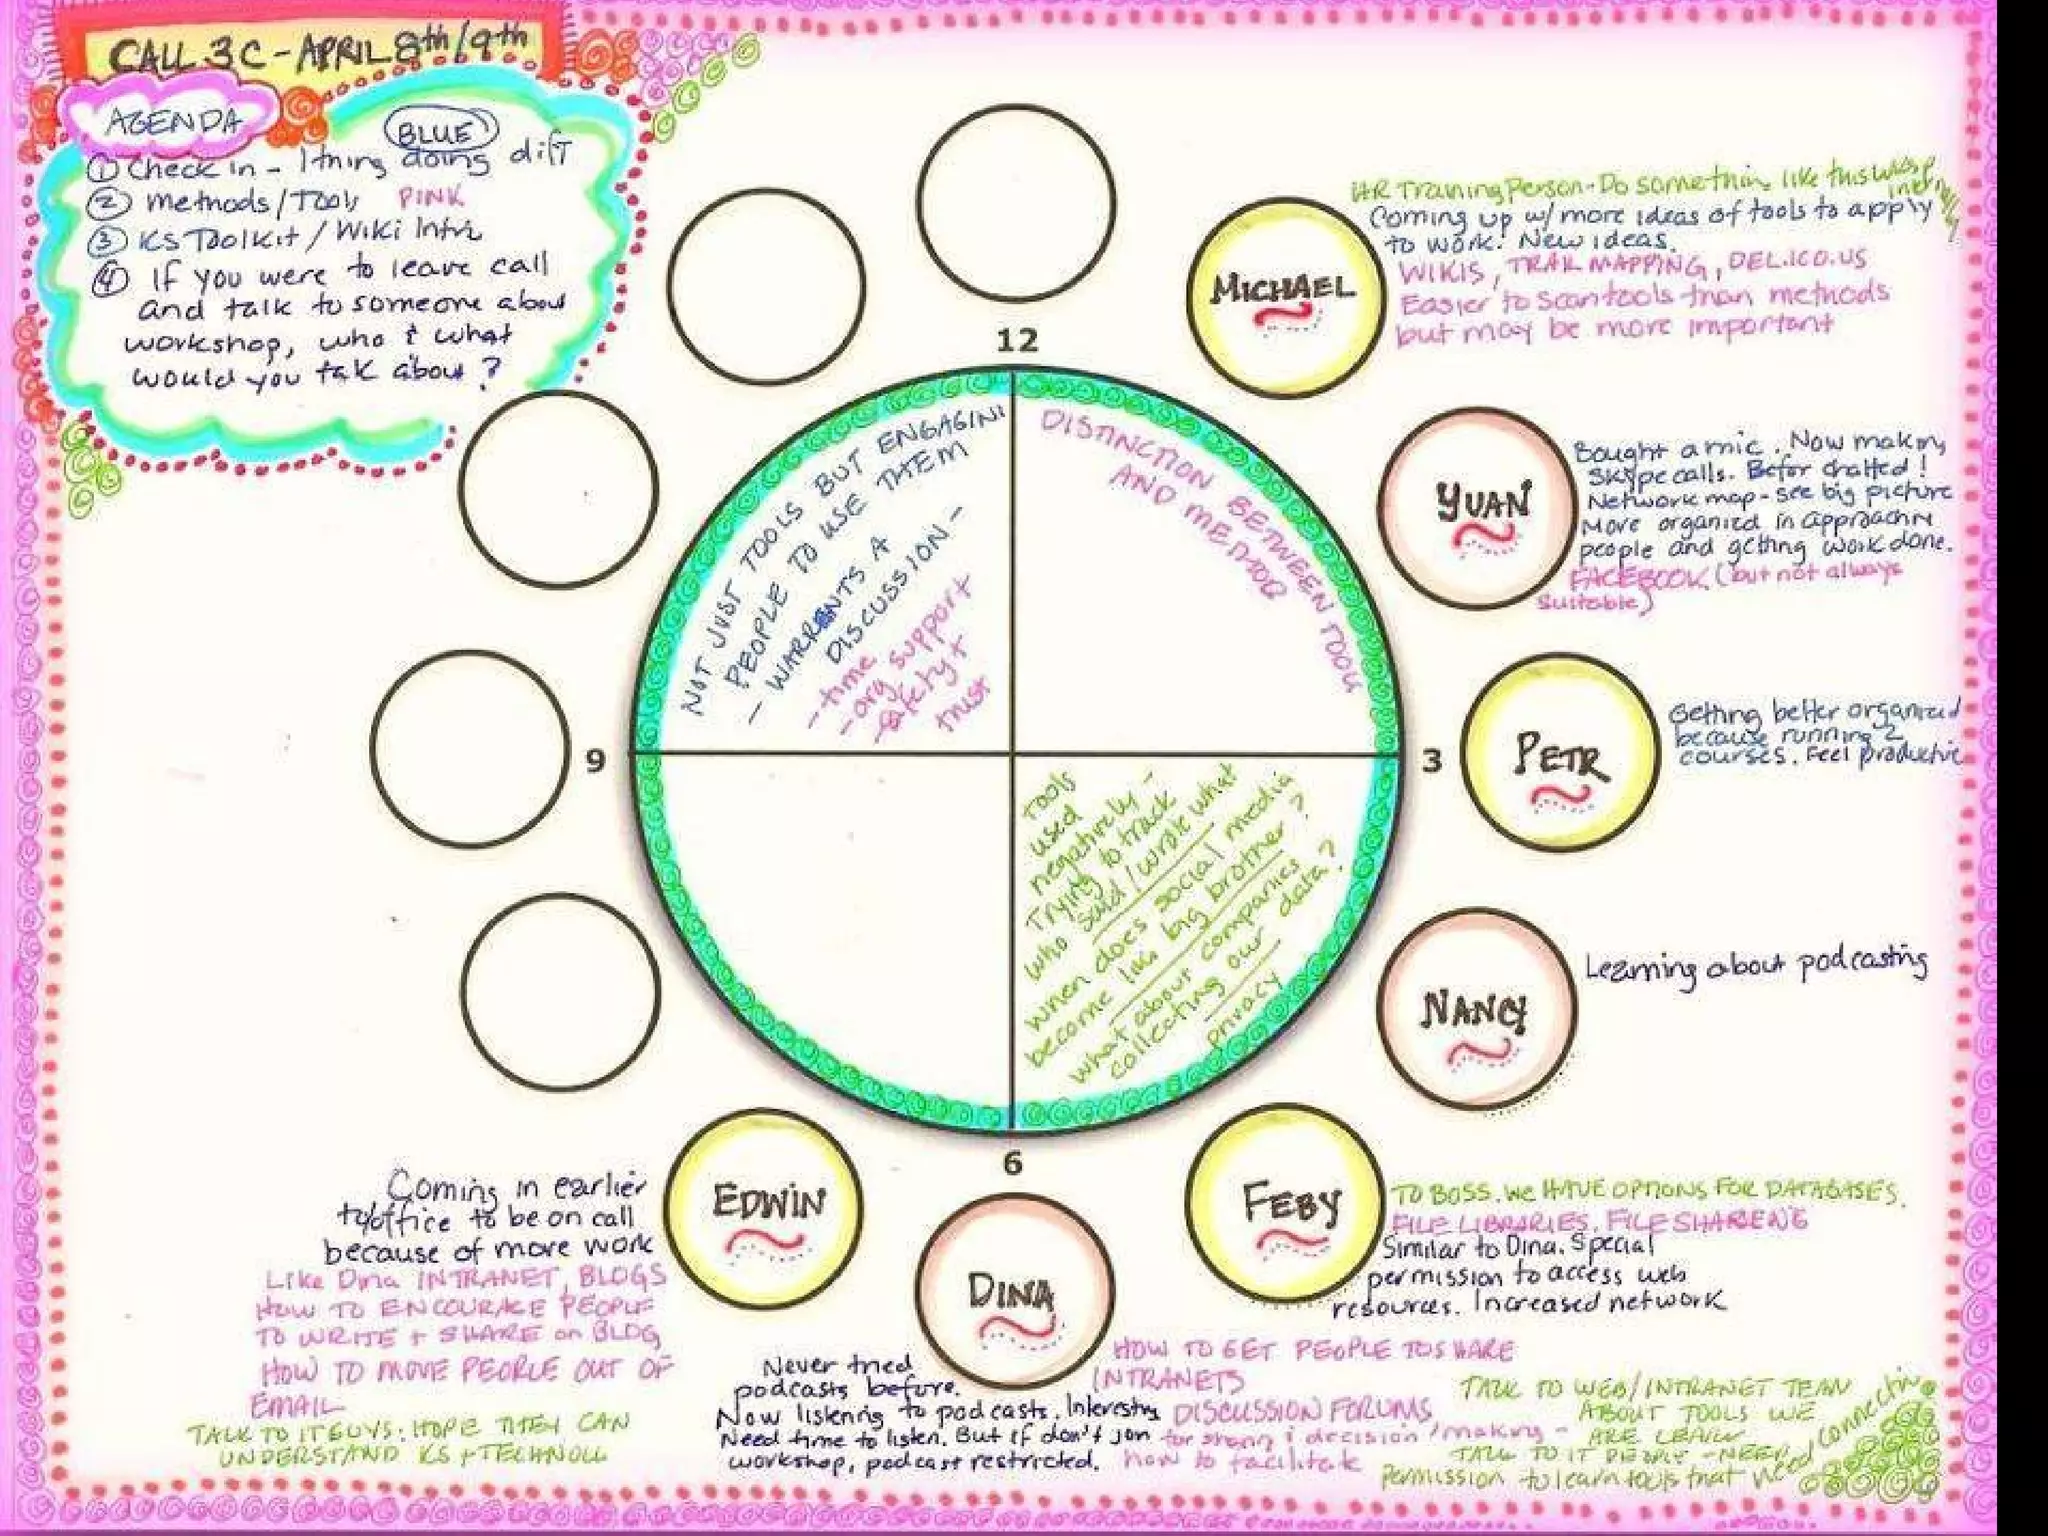 CALL 3C - APRIL 8th/9th
AGENDA
BLUE
① Check in - 1 thing doing diff
② methods/Tools PINK
③ KS Toolkit / Wiki Intro
④ If you were to leave call
and talk to someone about
workshop, who & what
would you talk about?
12
3
6
9
NOT JUST TOOLS BUT ENGAGING
PEOPLE TO USE THEM
- WARRENTS A
DISCUSSION -
- time
- org support
- safety +
trust
DISTINCTION BETWEEN TOOLS
AND METHOR
Tools
used
negatively -
Trying to track
who said/wrote what
when does social media
become like big brother?
what about companies
collecting our data?
privacy
MICHAEL
HR Training Person - Do something like this
Coming up w/ more ideas of tools to apply
to work. New ideas.
WIKIS, MAPPING, DEL.ICO.US
Easier to scan tools than methods
but may be more important
YUAN
Bought a mic. Now making
Skype calls. Befor chatted!
Network map - see big picture
More organized in approachng
people and getting work done.
FACEBOOK (but not always
suitable)
PETR
Getting better organized
because running 2
courses. Feel productive
NANCY
Learning about podcasting
FEBY
TO BOSS. We HAVE OPTIONS FOR DATABASES.
FILE LIBRARIES, FILE
Similar to Dina. Special
permission to access web
resources. Increased network
DINA
Never tried
podcasts before.
Now listening to podcasts. Interesting
Need time to listen. But if don't join
workshop, podcast restricted.
HOW TO GET PEOPLE TO SHARE
INTRANETS
DISCUSSION FORUMS
for sharing & decision/making -
how to facilitate
TALK TO WEB/INTRANET TEAM
ABOUT TOOLS WE
ARE
TALK TO IT PEOPLE - NEED
Permission to learn tools that
connecting
EDWIN
Coming in earlier
to/office to be on call
because of more work
Like Dina INTRANET, BLOGS
HOW TO ENCOURAGE PEOPLE
TO WRITE + SHARE on BLOG
HOW TO MOVE PEOPLE OUT OF
EMAIL
TALK TO IT GUYS: HOPE THEY CAN
UNDERSTAND KS + TECHNOLL